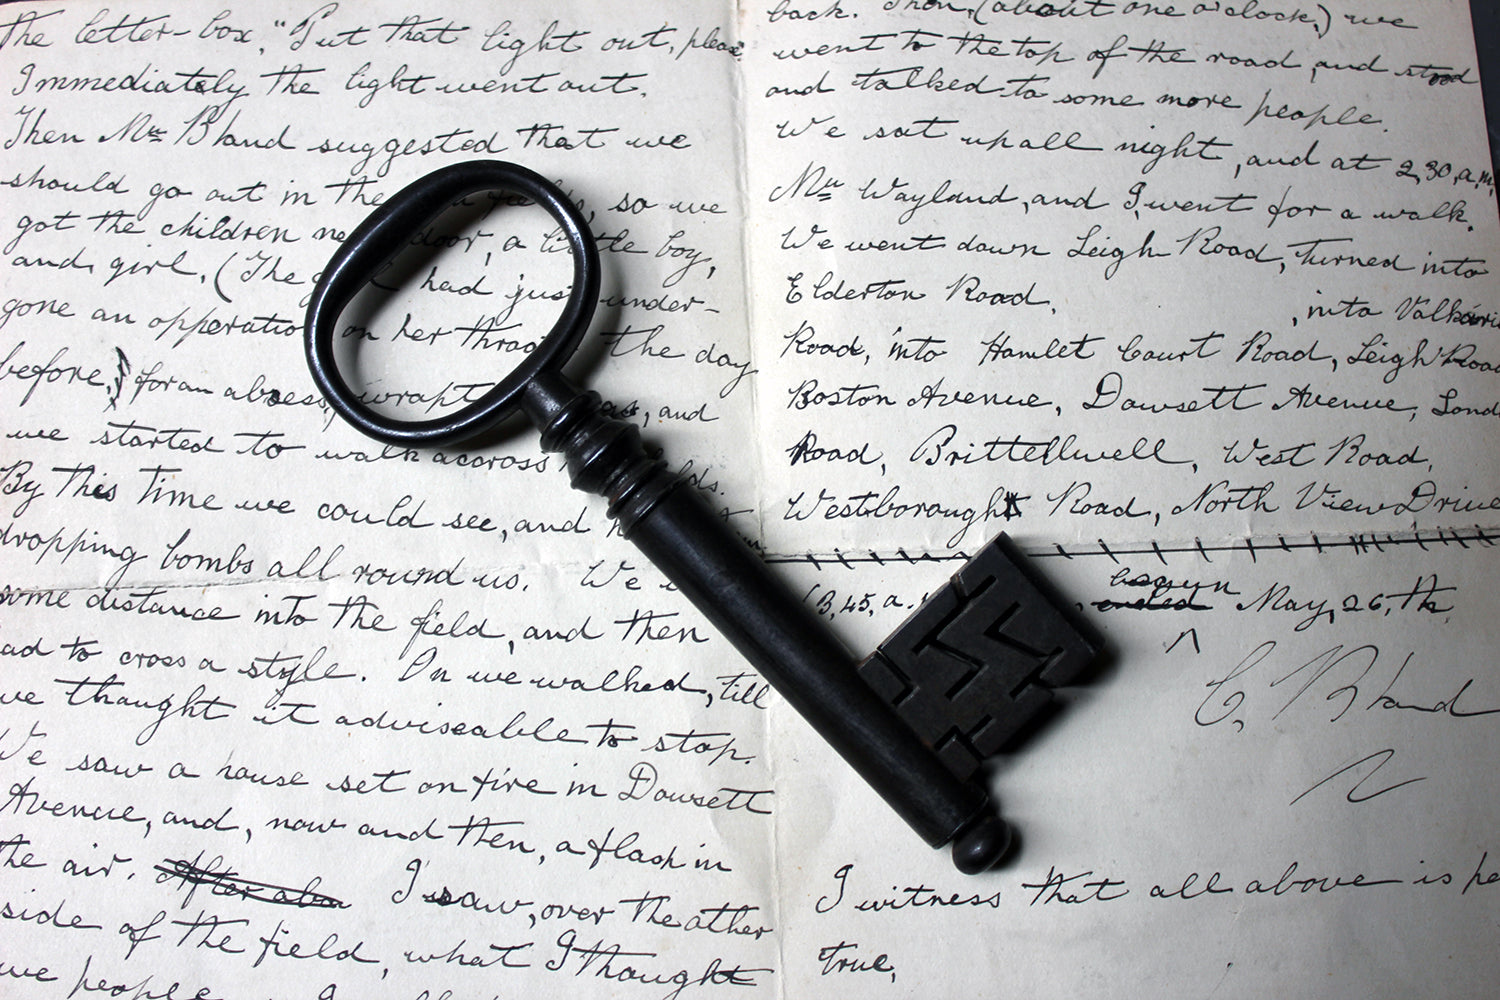 the letter-box, "Put that light out, please
Immediately the light went out.
Then Mrs Bland suggested that we
should go out in the fields, so we
got the children next door, a little boy,
and, girl, (The girl had just under-
gone an opperation on her throat the day
before, for an absess, wrapt and
we started to walk accross fields.
By this time we could see, and
dropping bombs all round us. We
some distance into the field, and then
had to cross a style. On we walked, till
we thought it adviseable to stop.
We saw a house set on fire in Dowsett
Avenue, and, now and then, a flash in
the air. After abou I saw, over the other
side of the field, what I thought
we people
back. Then, (about one o'clock,) we
went to the top of the road, and stood
and talked to some more people.
We sat up all night, and at 2,30, a.m.
Mrs Wayland, and I, went for a walk.
We went down Leigh Road, turned into
Elderton Road. , into Valkari
Road, into Hamlet Court Road, Leigh Road
Boston Avenue, Dowsett Avenue, Lond
Road, Brittellwell, West Road,
Westborough Road, North View Drive
begun
(3,45, a. ended May, 26, th
^
C. Bland
I witness that all above is pe
true,